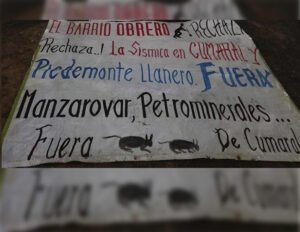 EL BARRIO OBRERO ¡RECHAZA
Rechaza..! la Sismica en CUMARAL Y
Piedemonte Llanero. FUERA
Manzarovar, Petrominerales...
Fuera De Cumaral
Fuera De Cumaral